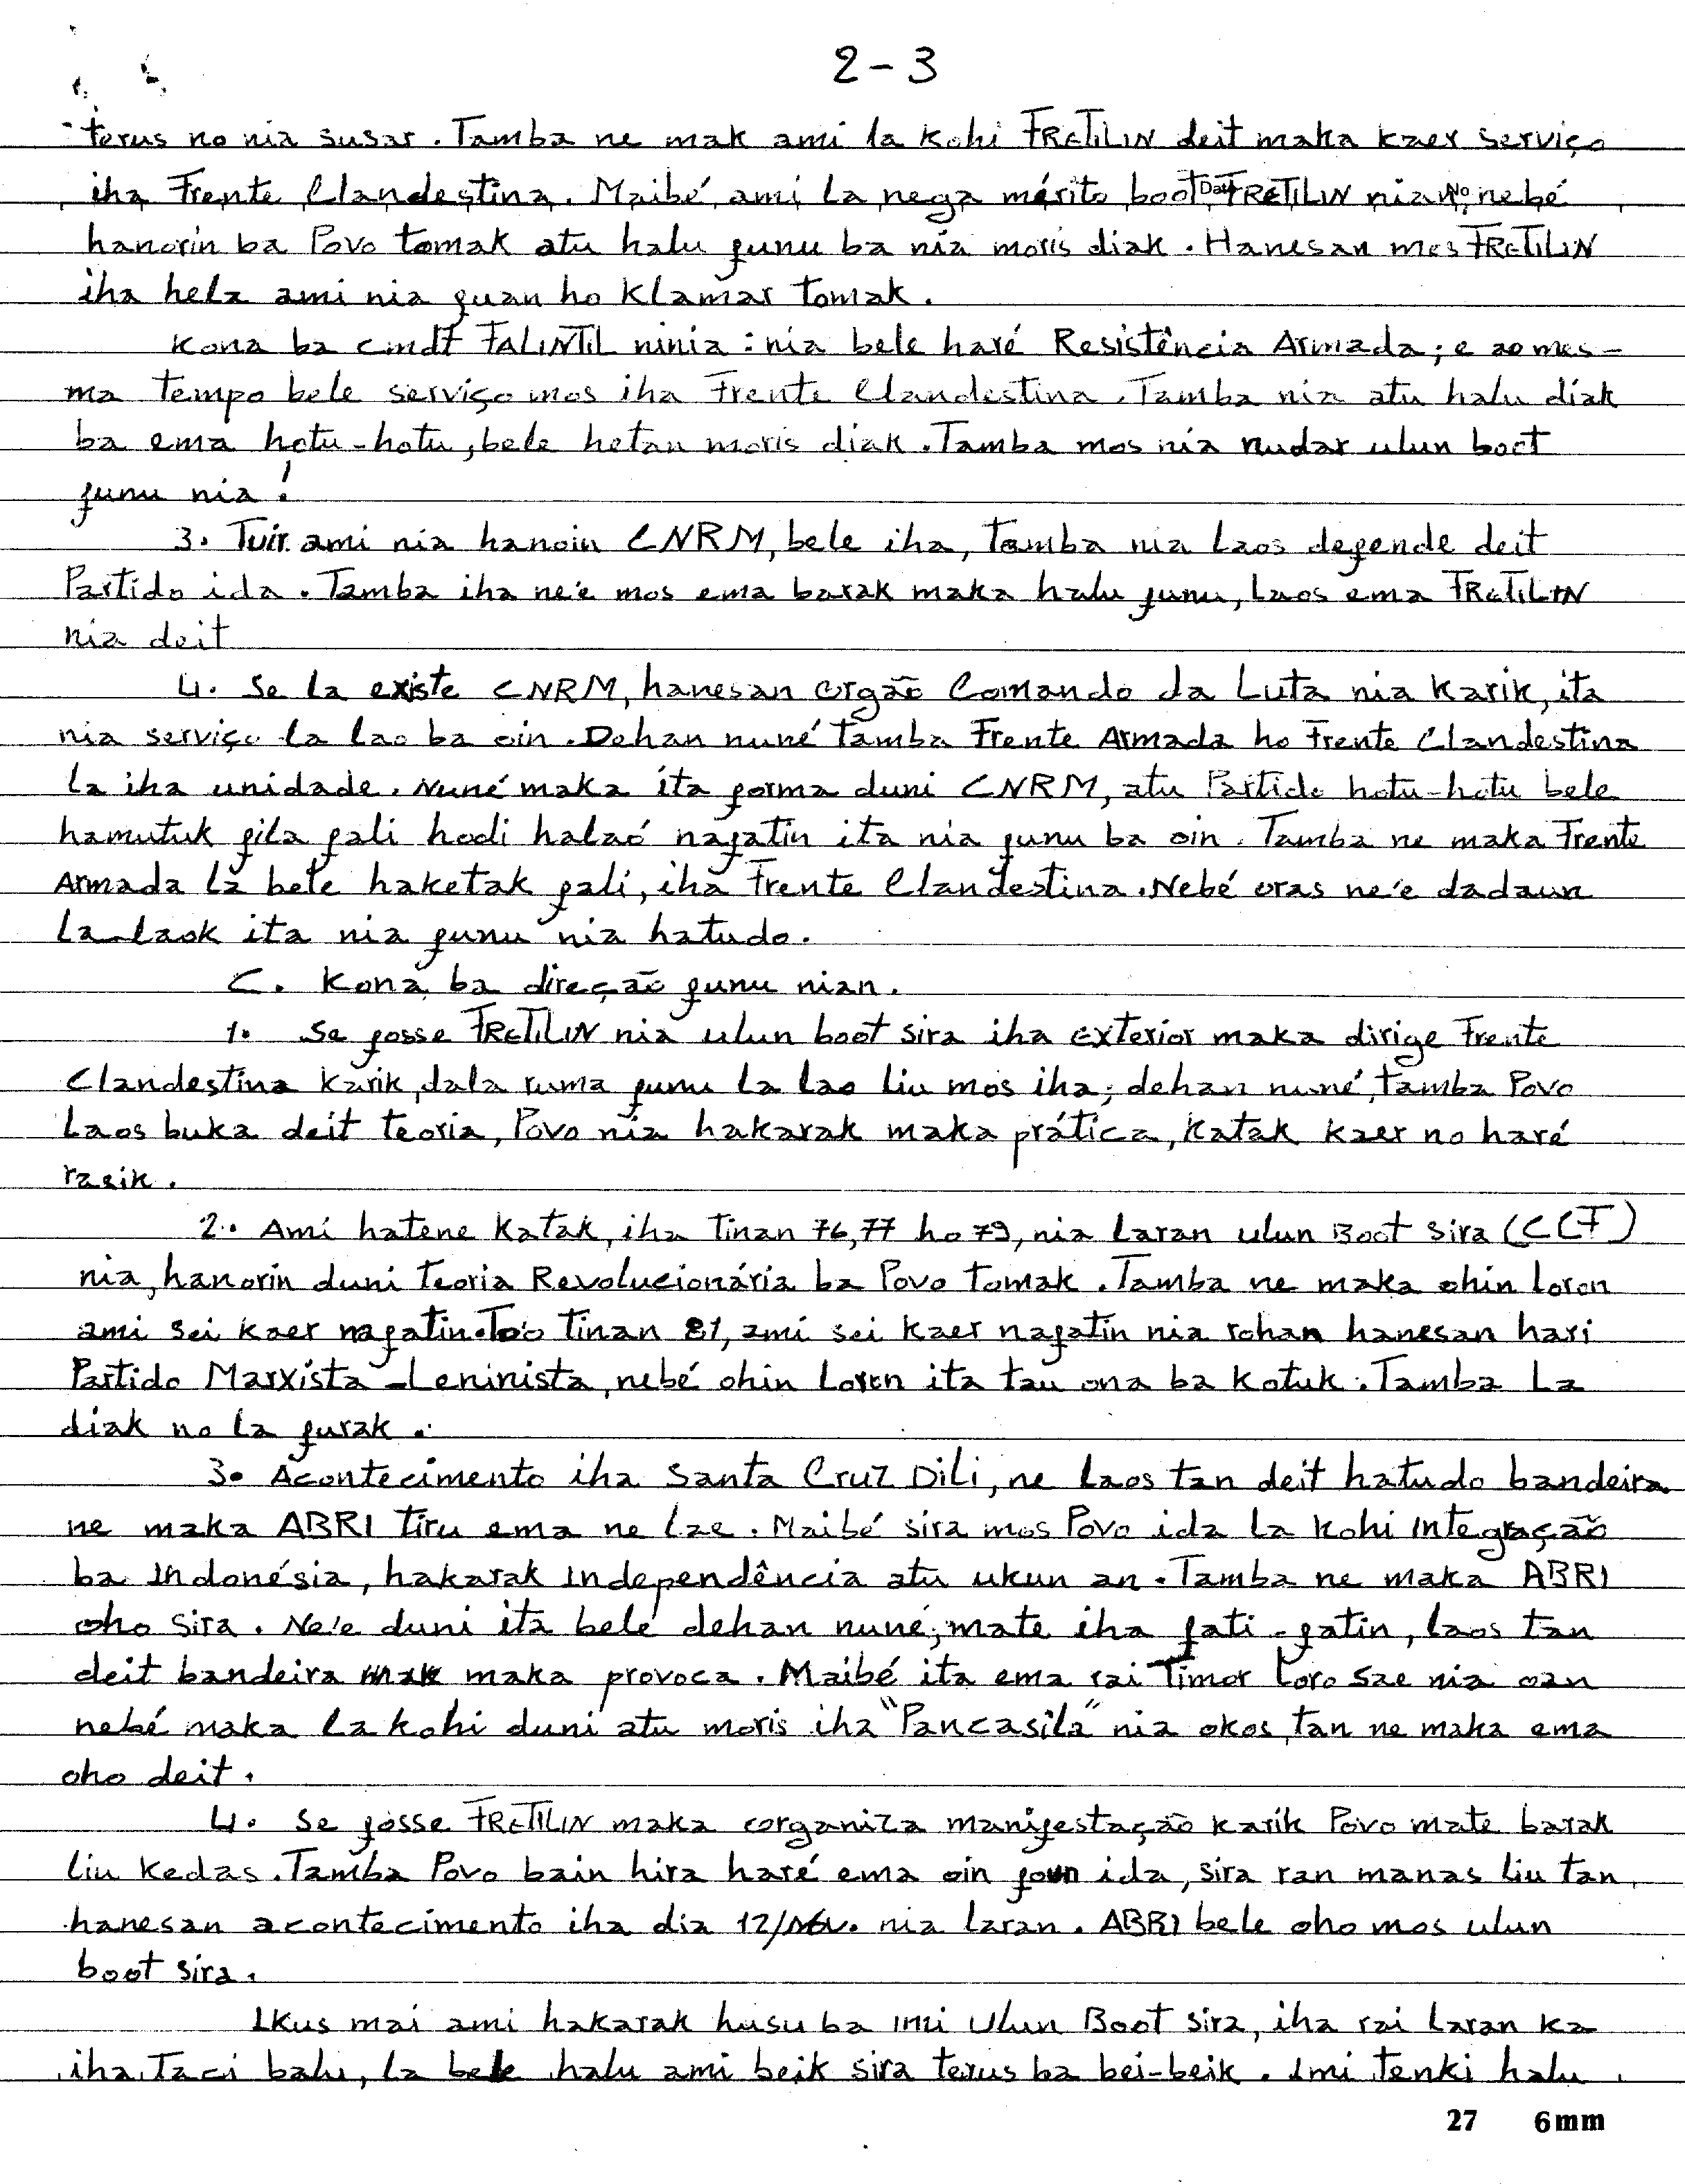 2-3
terus no nia susar. Tamba ne mak ami la kohi FRETILIN deit maka kaer serviço
iha Frente Clandestina. Maibé ami la nega mérito boot FRETILIN nian, nebé
hanorin ba Povo tomak atu halu funu ba nia moris diak. Hanesan mos FRETILIN
iha hela ami nia fuan ho Klamar tomak.
Kona ba cmdt FALINTIL ninia: nia bele haré Resistência Armada; e ao mes-
ma tempo bele serviço mos iha Frente Clandestina. Tamba nia atu halu diak
ba ema hotu-hotu, bele hetan moris diak. Tamba mos nia nudar ulun boot
funu nia!
3. Tuir ami nia hanoin CNRM, bele iha, Tamba nia Laos defende deit
Partido ida. Tamba iha ne'e mos ema barak maka halu funu, Laos ema FRETILIN
nia deit
4. Se la existe CNRM, hanesan orgão Comando da Luta nia Karik, ita
nia serviço la lao ba oin. Dehan nuné Tamba Frente Armada ho Frente Clandestina
la iha unidade. Nuné maka ita forma duni CNRM, atu Partido hotu-hotu bele
hamutuk fila fali hodi halaó nafatin ita nia funu ba oin. Tamba ne maka Frente
Armada la bele haketak fali, iha Frente Clandestina. Nebé oras ne'e dadaun
la-laok ita nia funu nia hatudo.
C. Kona ba direção funu nian.
1. Se fosse FRETILIN nia ulun boot sira iha Exterior maka dirige Frente
Clandestina Karik, dala ruma funu la lao liu mos iha; dehan nuné, Tamba Povo
Laos buka deit teoria, Povo nia hakarak maka prática, Katak kaer no haré
rasik.
2. Ami hatene Katak, iha Tinan 76, 77 ho 79, nia Laran ulun Boot sira (CCF)
nia, hanorin duni Teoria Revolucionária ba Povo tomak. Tamba ne maka ohin loron
ami sei kaer nafatin. Too Tinan 81, ami sei kaer nafatin nia rohan hanesan hari
Partido Marxista-Leninista, nebé ohin Loron ita tau ona ba kotuk. Tamba La
diak no la furak.
3. Acontecimento iha Santa Cruz Dili, ne Laos tan deit hatudo bandeira
ne maka ABRI Tiru ema ne lae. Maibé sira mos Povo ida la kohi Integração
ba Indonésia, hakarak Independência atu ukun an. Tamba ne maka ABRI
oho sira. Ne'e duni ita bele dehan nuné, mate iha fati-fatin, laos tan
deit bandeira maka provoca. Maibé ita ema rai Timor Loro Sae nia oan
nebé maka la kohi duni atu moris iha "Pancasila" nia okos, tan ne maka ema
oho deit.
4. Se fosse FRETILIN maka organiza manifestação karik Povo mate barak
liu kedas. Tamba Povo bain hira haré ema oin foun ida, sira ran manas liu tan,
hanesan acontecimento iha dia 12/Nov. nia laran. ABRI bele oho mos ulun
boot sira.
Ikus mai ami hakarak husu ba imi Ulun Boot sira, iha rai Laran ka
iha Taci balu, la bele halu ami beik sira terus ba bei-beik. Imi tenki halu
27 6mm